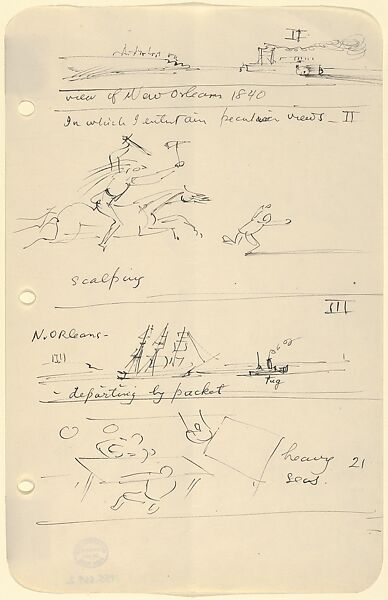 II
view of New Orleans 1840
In which I entertain peculiar views - II
scalping
III
N. Orleans -
tug
- departing by packet
heavy 21
seas.